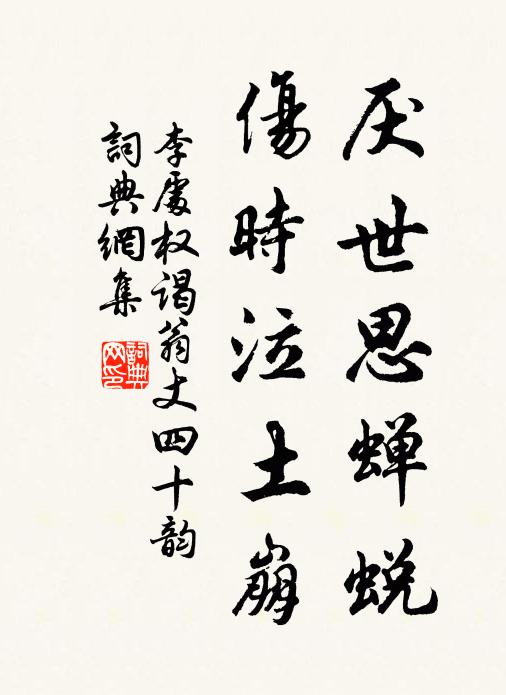 厌世思蝉蜕
傷時泣土崩
李處权谒翁丈四十韵
詞典網集
詞典網印